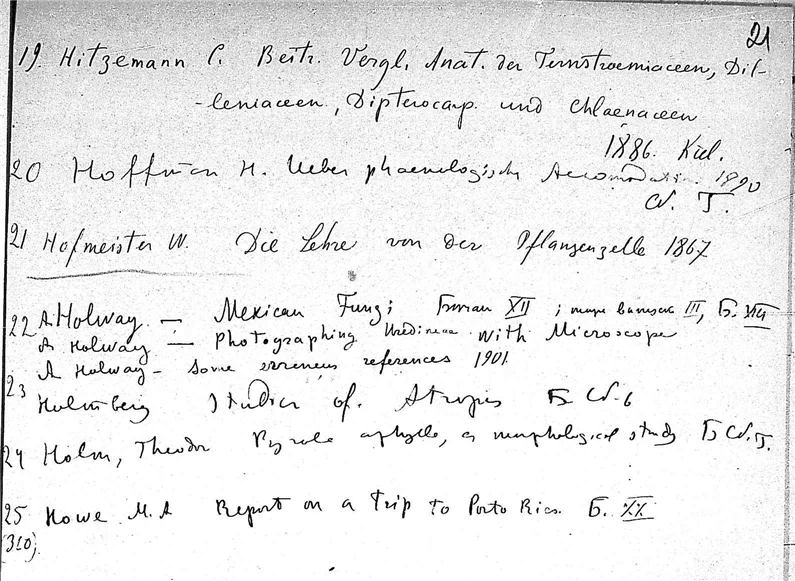 21
19. Hitzemann C. Beitr. Vergl. Anat. der Ternstroemiaceen, Dil-
-leniaceen, Dipterocarp. und Chlaenaceen
1886. Kiel.
20 Hoffman H. Ueber phaenologische Accomodation. 1890
21 Hofmeister W. Die Lehre von der Pflanzenzelle 1867
22 A Holway — Mexican Fungi XII III, Б. XIII
A Holway — Photographing Uredineae with Microscope
A Holway — Some erroneus references 1901.
23 Holmberg Studier of. Atropis Б
24 Holm, Theodor Pyrola aphylla, a morphological study Б
25 Howe M.A Report on a Trip to Porto Rico. Б. XX
(310).